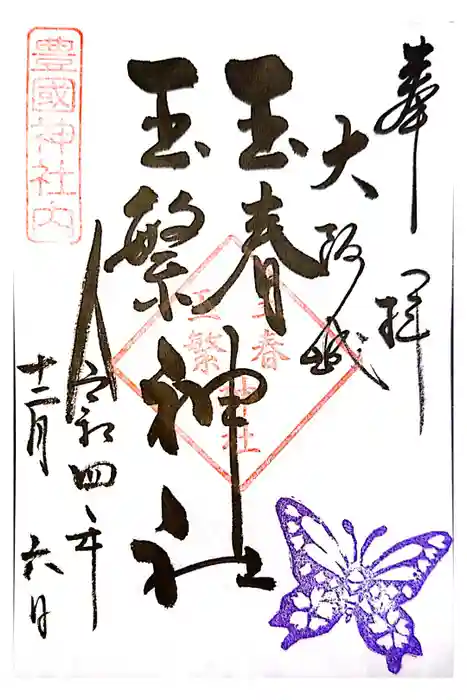 奉拝
大阪城
玉春
玉繁神社
令和四年
十二月六日
豊國神社内
玉春
玉繁
神社